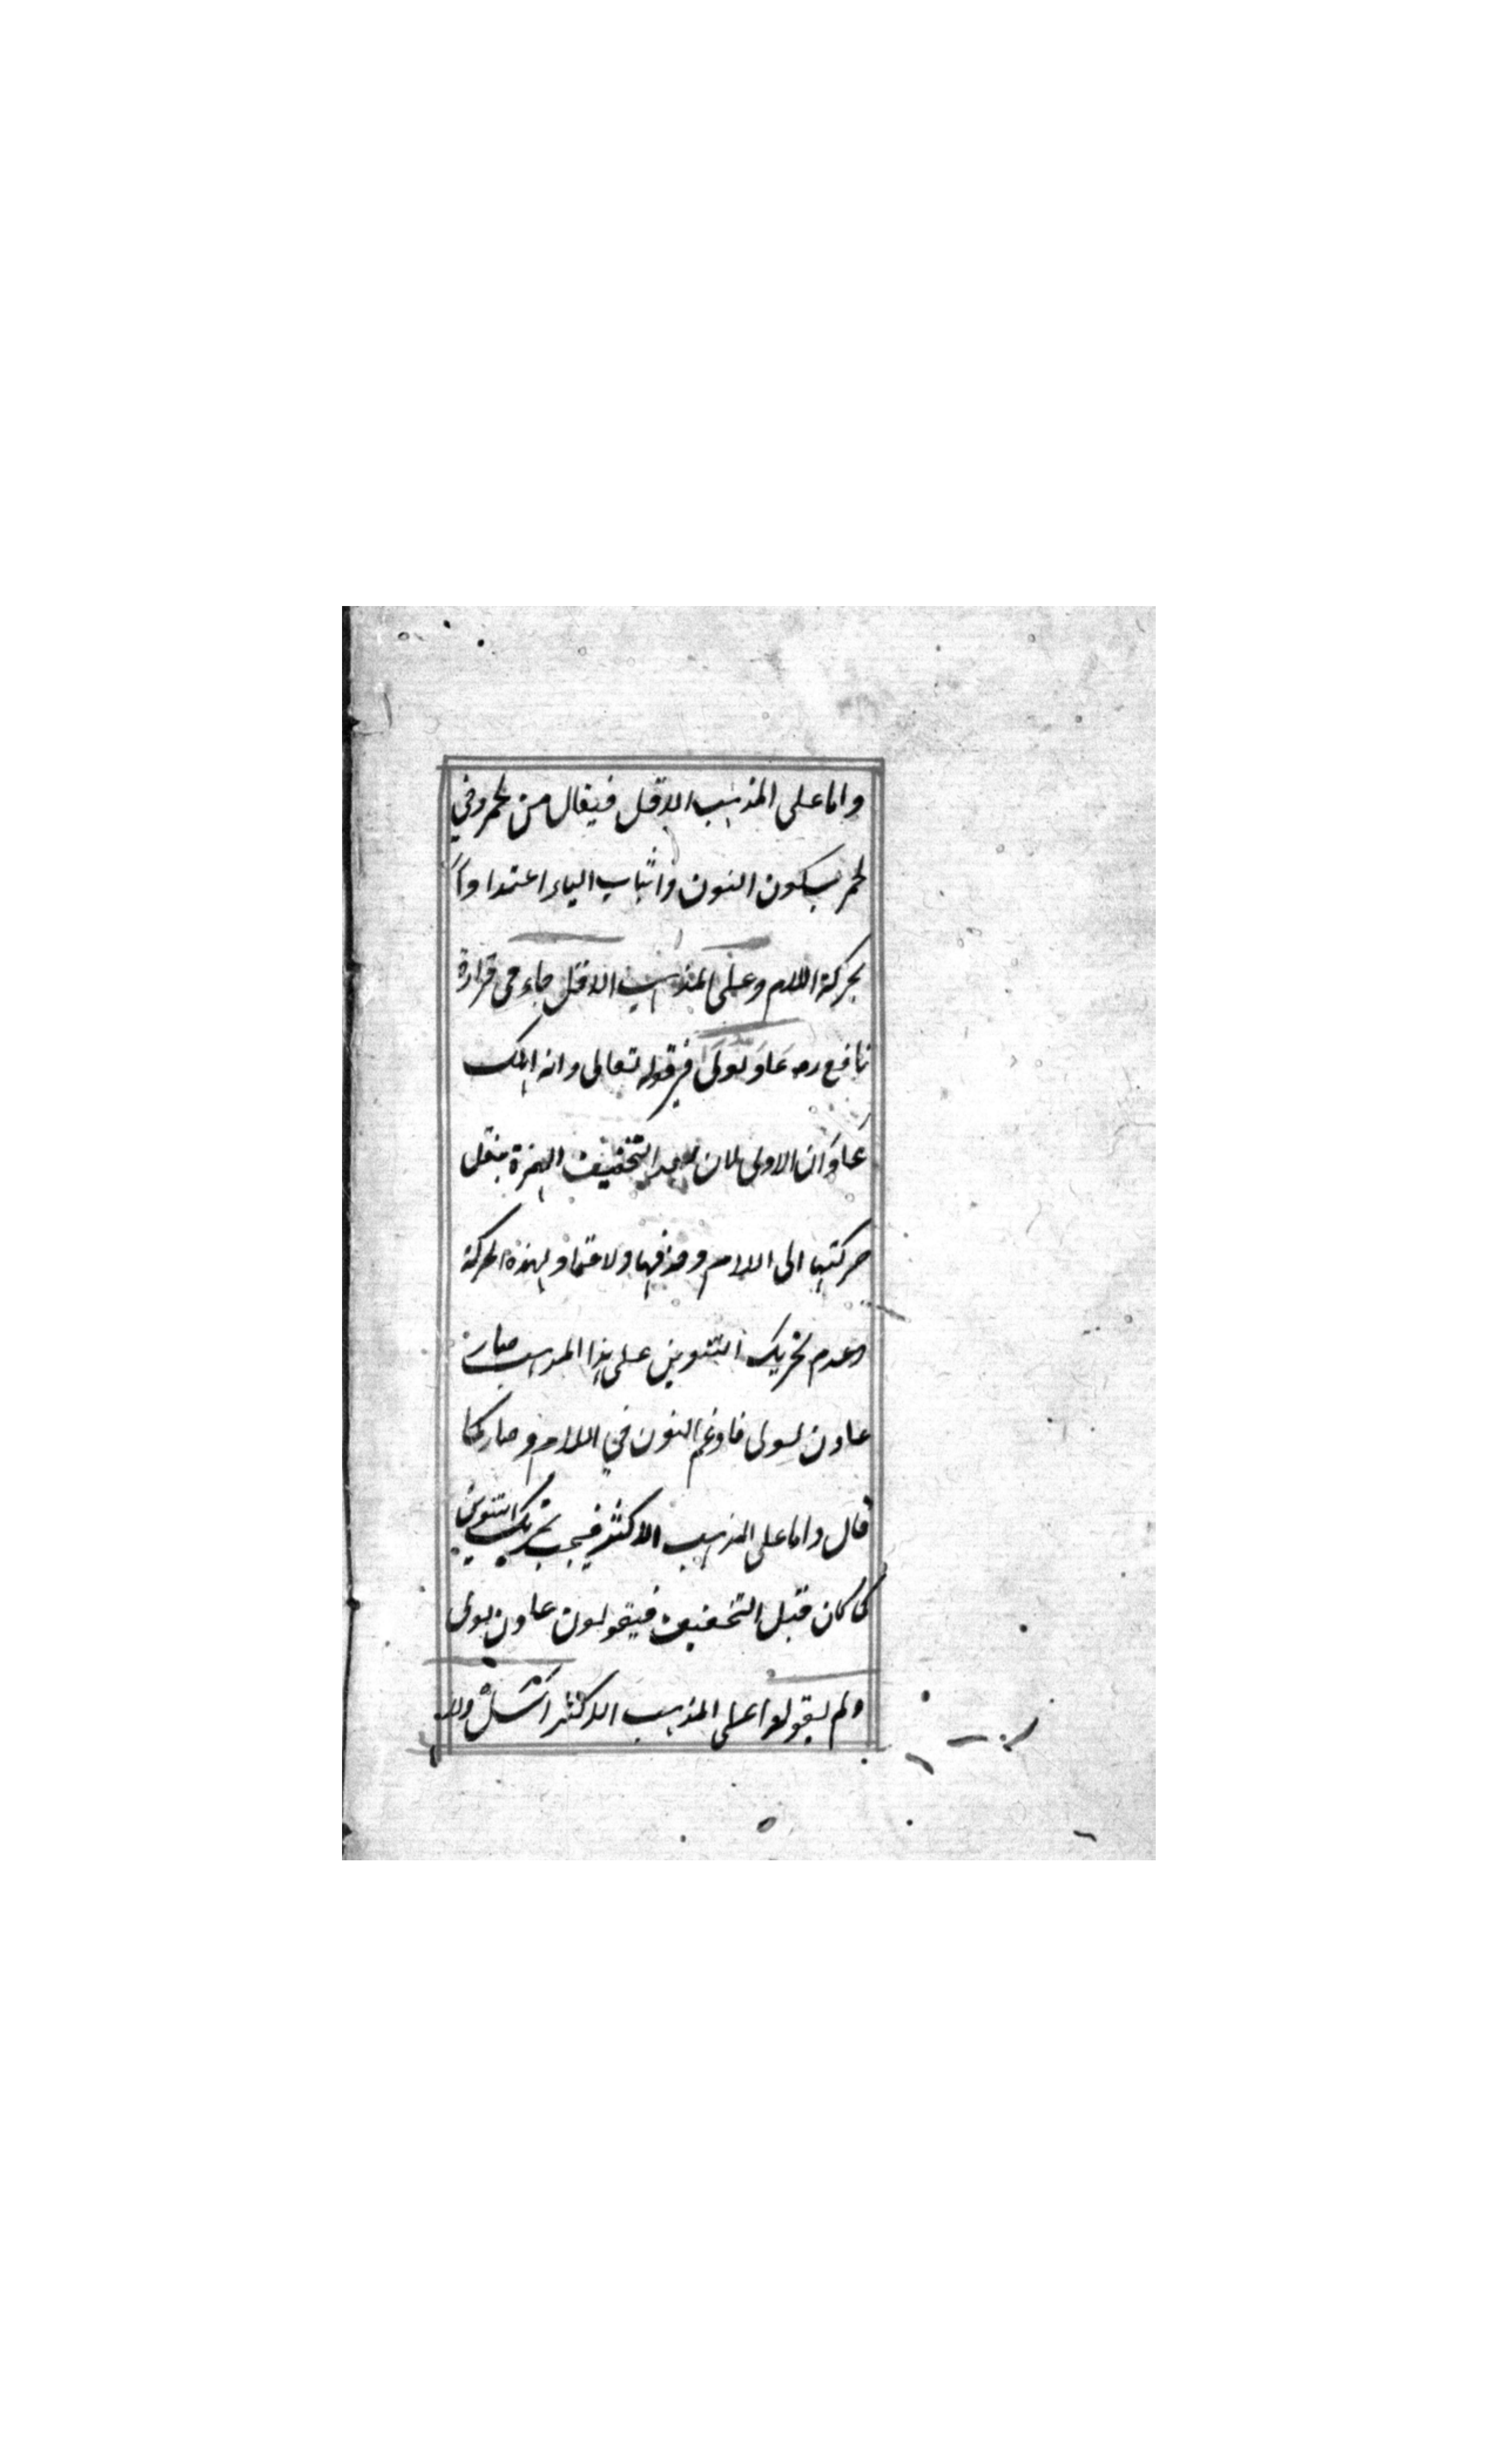 واما على المذهب الاقل فيقال من لحمر وفي
لحمر بسكون النون واثبات الياء اعتدادا
بحركة اللام وعلى المذهب الاقل جاء في قراءة
نافع ره عادَ لولى في قوله تعالى وانه اهلك
عادا ن الاولى لان بعد التخفيف الهمزة بنقل
حركتها الى اللام وحذفها والاعتداد بهذه الحركة
وعدم تحريك التنوين على هذا المذهب صار
عادن لولى فادغم النون في اللام وصار كما
قال واما على المذهب الاكثر فيجب تحريك التنوين
كما كان قبل التخفيف فيقولون عادن لولى
ولم يقولوا على المذهب الاكثر اسَلْ ولا